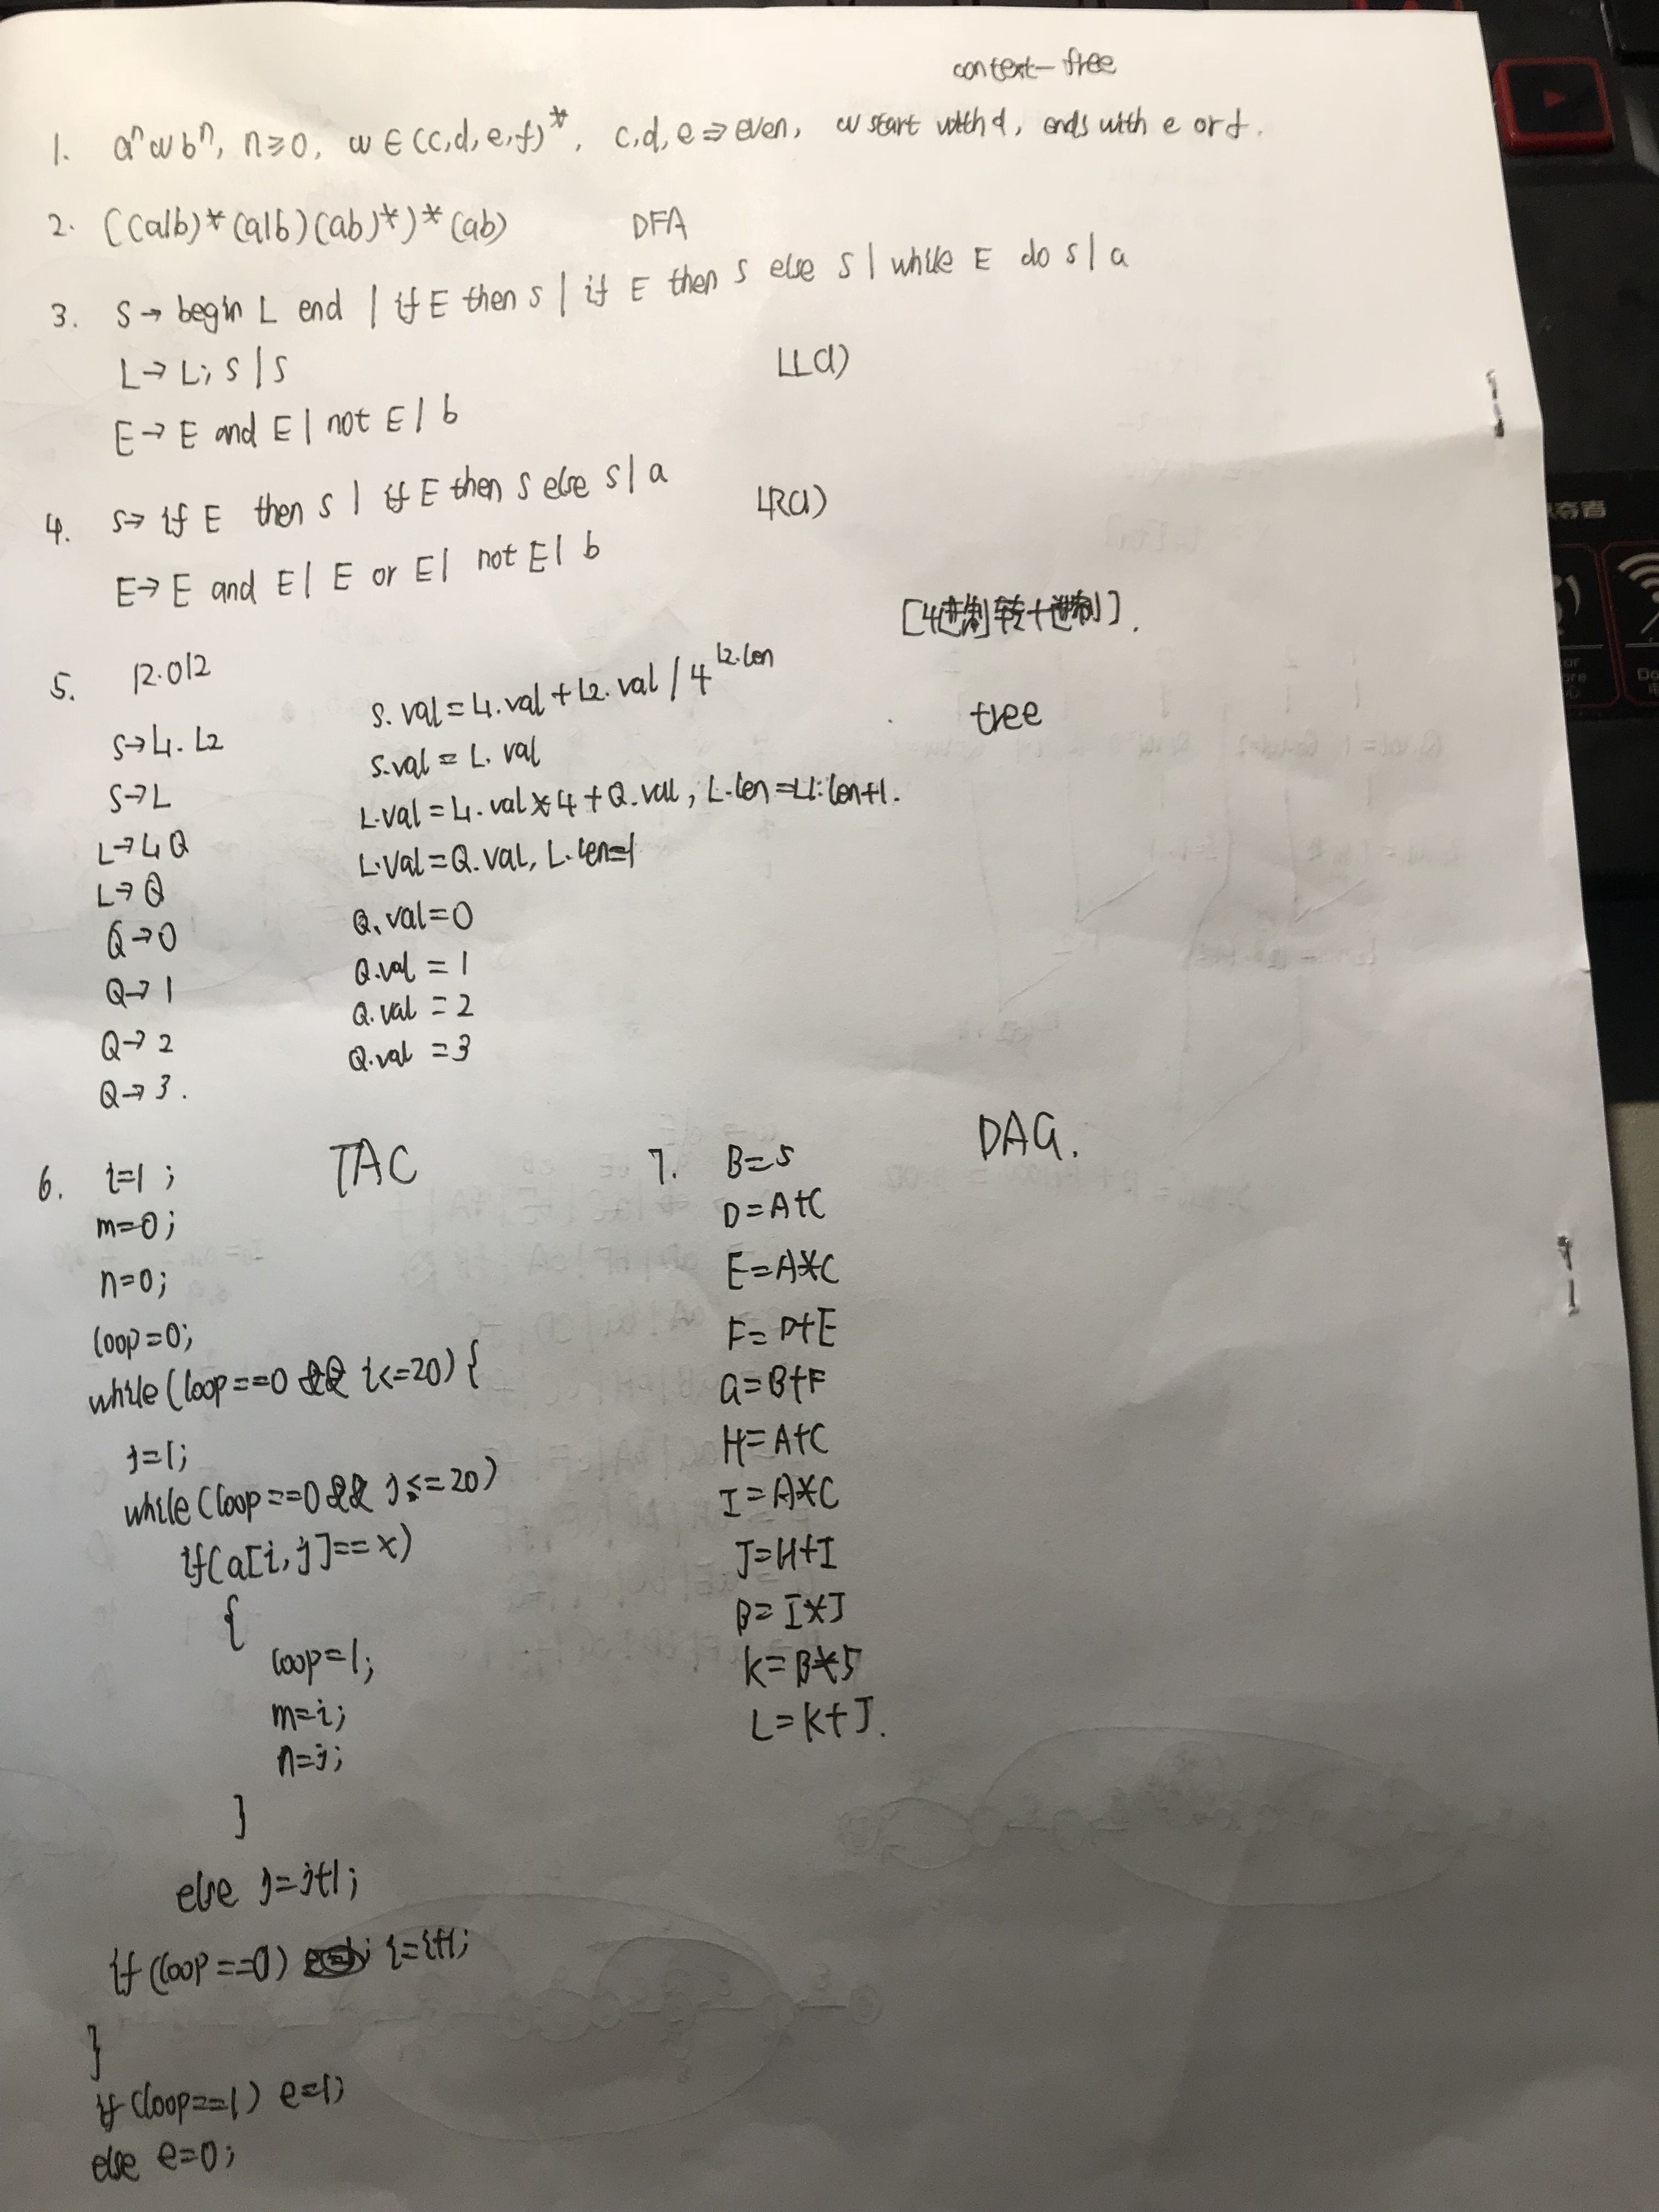 context-free
1. aⁿwbⁿ, n≥0, w∈(c,d,e,f)*, c,d,e⇒even, w start with d, ends with e or f.
2. ((a|b)*(a|b)(ab)*)*(ab) DFA
3. S→begin L end | if E then S | if E then S else S | while E do S | a
L→L; S | S LL(1)
E→E and E | not E | b
4. S→if E then S | if E then S else S | a LR(1)
E→E and E | E or E | not E | b
[4进制转十进制].
5. 12.012
S→L1.L2 S.val=L1.val+L2.val/4^L2.len tree
S→L S.val=L.val
L→L1Q L.val=L1.val*4+Q.val, L.len=L1.len+1.
L→Q L.val=Q.val, L.len=1
Q→0 Q.val=0
Q→1 Q.val=1
Q→2 Q.val=2
Q→3. Q.val=3
6. i=1; TAC
m=0;
n=0;
loop=0;
while(loop==0 && i<=20){
j=1;
while(loop==0 && j<=20)
if(a[i,j]==x)
{
loop=1;
m=i;
n=j;
}
else j=j+1;
if(loop==0) i=i+1;
}
if(loop==1) e=1;
else e=0;
7. B=5 DAG.
D=A+C
E=A*C
F=D+E
G=B+F
H=A+C
I=A*C
J=H+I
B=I*J
K=B*5
L=K+J.
夺者